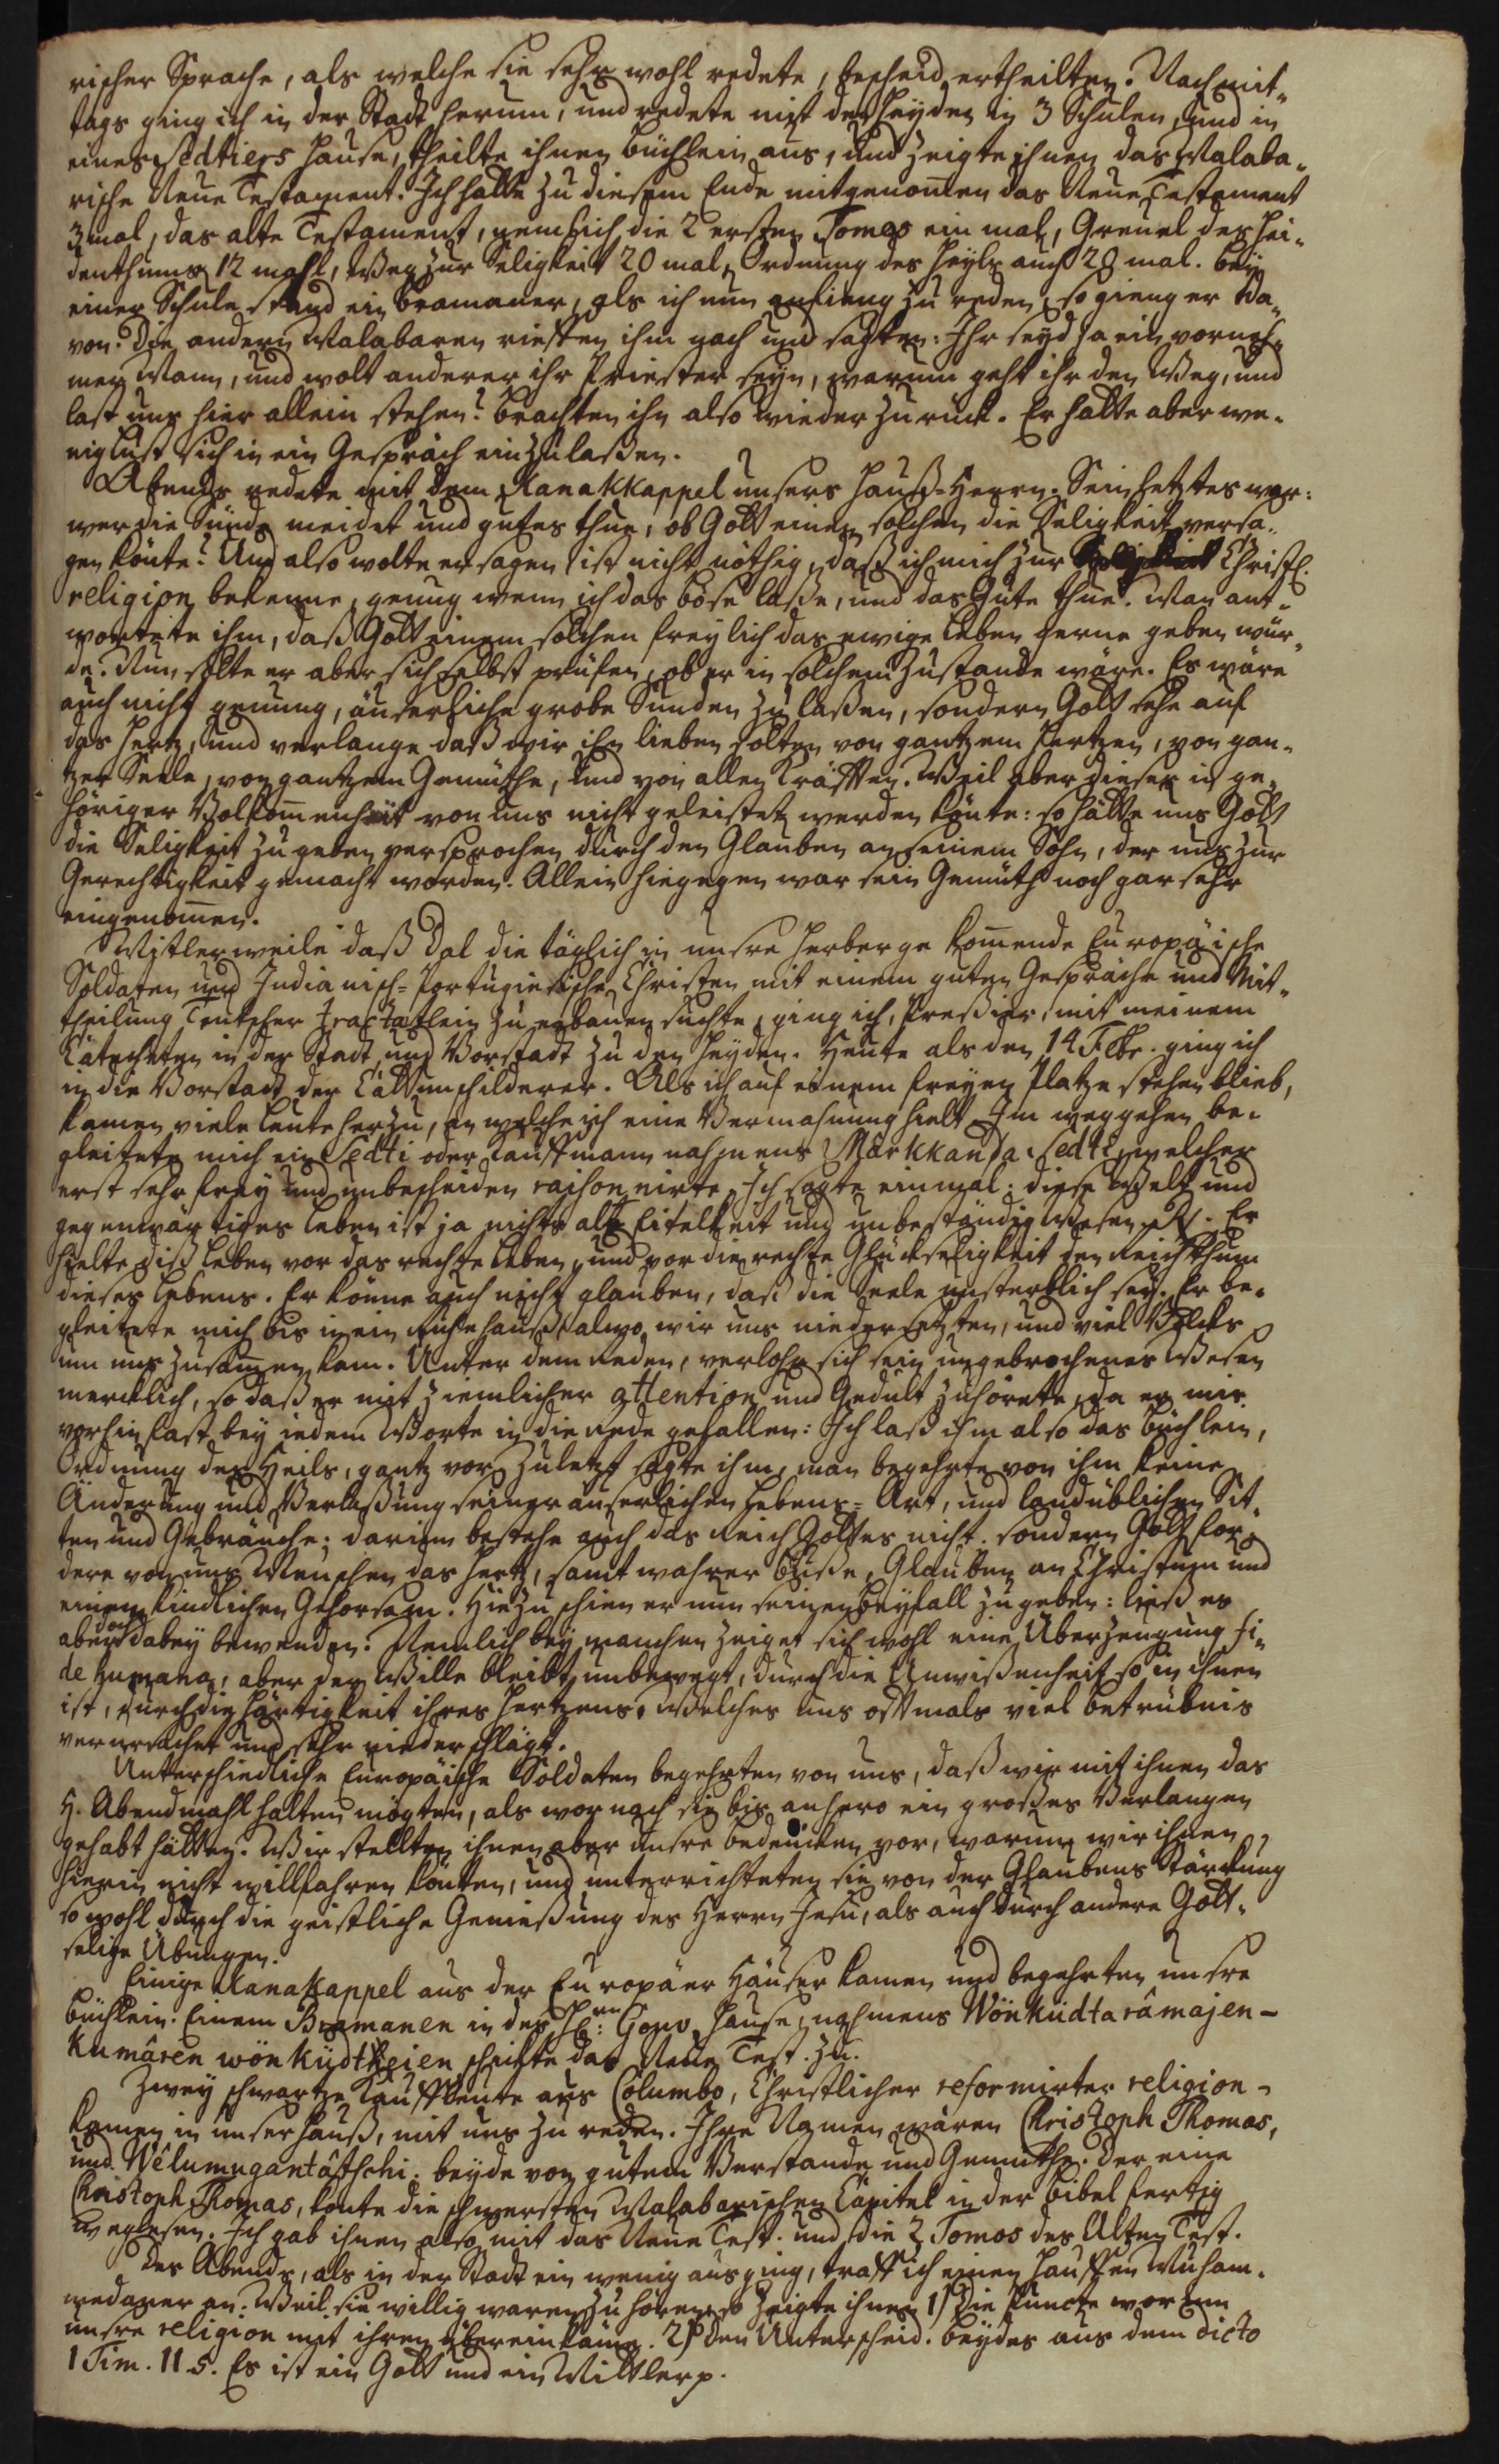 rischer Sprache, als welche sie sehr wohl redete, bescheid ertheilten. Nachmit-
tags ging ich in der Stadt herum, und redete mit den Heyden in 3 Schulen, und in
eines Sedtiers Hause, theilte ihnen büchlein aus, und zeigte ihnen das Malaba-
rische Neue Testament. Ich hatte zu diesem Ende mitgenom̄en das Neue Testament
3 mal, das alte Testament, nemlich die 2 ersten Tomos ein mal, Greuel des Hei-
denthums 12 mahl, Weg zur Seligkeit 20 mal, Ordnung des Heyls auch 20 mal. Bey
einer Schule stund ein Bramaner, als ich nun anfieng zu reden, so gieng er da-
von. Die andern Malabaren rieffen ihm nach und sagten: Ihr seyd ja ein vorneh-
mer Mann, und wolt anderer ihr Priester seyn, warum geht ihr den Weg, und
last uns hier allein stehen? brachten ihn also wieder zurück. Er hatte aber we-
nig lust sich in ein Gespräch einzulaßen.
Abends redete mit dem Kanakkappel unsers Hauß-Herrn. Sein letztes war:
wer die Sünde meidet und gutes thue, ob Gott einem solchen die Seligkeit versa-
gen könte? Und also wolte er sagen ist nicht nöthig, daß ich mich zur Christl.
religion bekenne, genug wenn ich das böse laße, und das Gute thue. Man ant-
wortete ihm, daß Gott einem solchen freylich das ewige Leben gerne geben wür-
de. Nun solte er aber sich selbst prüfen, ob er in solchem Zustande wäre. Es wäre
auch nicht genung, äuserliche grobe Sünden zu laßen, sondern Gott sehe auf
das Hertz, und verlange daß wir ihn lieben solten von gantzem Hertzen, von gan-
tzer Seele, von gantzem Gemüthe, und von allen Kräfften. Weil aber dieses in ge-
höriger Volkom̄enheit von uns nicht geleistet werden könte: so hätte uns Gott
die Seligkeit zu geben versprochen durch den Glauben an seinem Sohn, der uns zur
Gerechtigkeit gemacht worden. Allein hiegegen war sein Gemüth noch gar sehr
eingenom̄en.
Mitlerweile daß Dal die täglich in unsre Herberge kom̄ende Europäische
Soldaten und Indianisch-Portugiesische Christen mit einem guten Gespräche und Mit-
theilung Teutscher tractätlein zu erbauen suchte, ging ich, Preßier, mit meinem
Catecheten in der Stadt und Vorstadt zu den Heyden. Heute als den 14 Febr. ging ich
in die Vorstadt der Cattunschilderer. Als ich auf einem freyen Platze stehen blieb,
kamen viele Leute herzu, an welche ich eine Vermahnung hielt. Im weggehen be-
gleitete mich ein Sedti oder Kauffmann nahmens Märkkanda Sedti, welcher
erst sehr frey und unbescheiden raisonnirte. Ich sagte einmal: diese Welt und
gegenwärtiges Leben ist ja nichts als Eitelkeit und unbeständig Wesen. Er
hielte diß Leben vor das rechte Leben, und vor die rechte Glückseligkeit den Reichthum
dieses Lebens. Er könne auch nicht glauben, daß die Seele unsterblich sey. Er be-
gleitete mich bis in ein Ruhehauß, alwo wir uns niedersetzten, und viel Volcks
um uns zusam̄en kam. Unter dem Reden, verlohr sich sein ungebrochenes Wesen
mercklich, so daß er mit ziemlicher attention und Gedult zuhörete, da er mir
vorhin fast bey iedem Worte in die rede gefallen: Ich laß ihm also das büchlein,
Ordnung des Heils, gantz vor. Zuletzt sagte ihm, man begehrte von ihm keine
Änderung und Verlaßung seiner äuserlichen Lebens-Art, und landüblichen Sit-
ten und Gebräuche; darinn bestehe auch das Reich Gottes nicht. sondern Gott for-
dere von uns Menschen das Hertz, samt wahrer buße, Glauben an Christum und
einen kindlichen Gehorsam. Hiezu schien er nun seinen beyfall zu geben: ließ es
aber dabey bewenden. Nemlich bey manchen zeiget sich wohl eine Überzeugung fi-
de humana, aber der Wille bleibt unbewegt, durch die Unwißenheit so in ihnen
ist, durch die Härtigkeit ihres Hertzens. Welches uns offtmals viel betrübnis
verursachet und sehr niederschlägt.
Unterschiedliche Europäische Soldaten begehrten von uns, daß wir mit ihnen das
H. Abendmahl halten mögten, als wornach sie bis anhero ein großes Verlangen
gehabt hätten. Wir stellten ihnen aber unsre bedencken vor, warum wir ihnen
hierin nicht willfahren könten, und unterrichteten sie von der Glaubens Stärckung
so wohl durch die geistliche Genießung des Herrn Jesu, als auch durch andere Gott-
selige Übungen.
Einige Kanakappel aus der Europäer Häuser kamen und begehrten unsre
büchlein. Einem Bramanen in des H: Gouv. Hause, nahmens Wönküdtarâmajen-
kumâren wönküdtkeien schickte das Neue Test. zu.
Zwey schwartze Kauffleute aus Columbo, Christlicher reformirter religion
kamen in unser Hauß, mit uns zu reden. Ihre Namen wären Christoph Thomas,
und Wêlumugantâtschi. beyde von gutem Verstande und Gemüthe. Der eine
Christoph Thomas, konte die schwersten Malabarischen Capitel in der Bibel fertig
weglesen. Ich gab ihnen also mit das Neue Test. und die 2 Tomos des Alten Test.
Des Abends, als in der Stadt ein wenig ausging, traff ich einen Hauffen Muham-
medaner an. Weil sie willig waren zu hören, so zeigte ihnen 1) Die Puncte worinn
unsre religion mit ihren übereinkäme. 2) den Unterscheid. beydes aus dem dicto
1 Tim. II. 5. Es ist ein Gott und ein Mittler p.